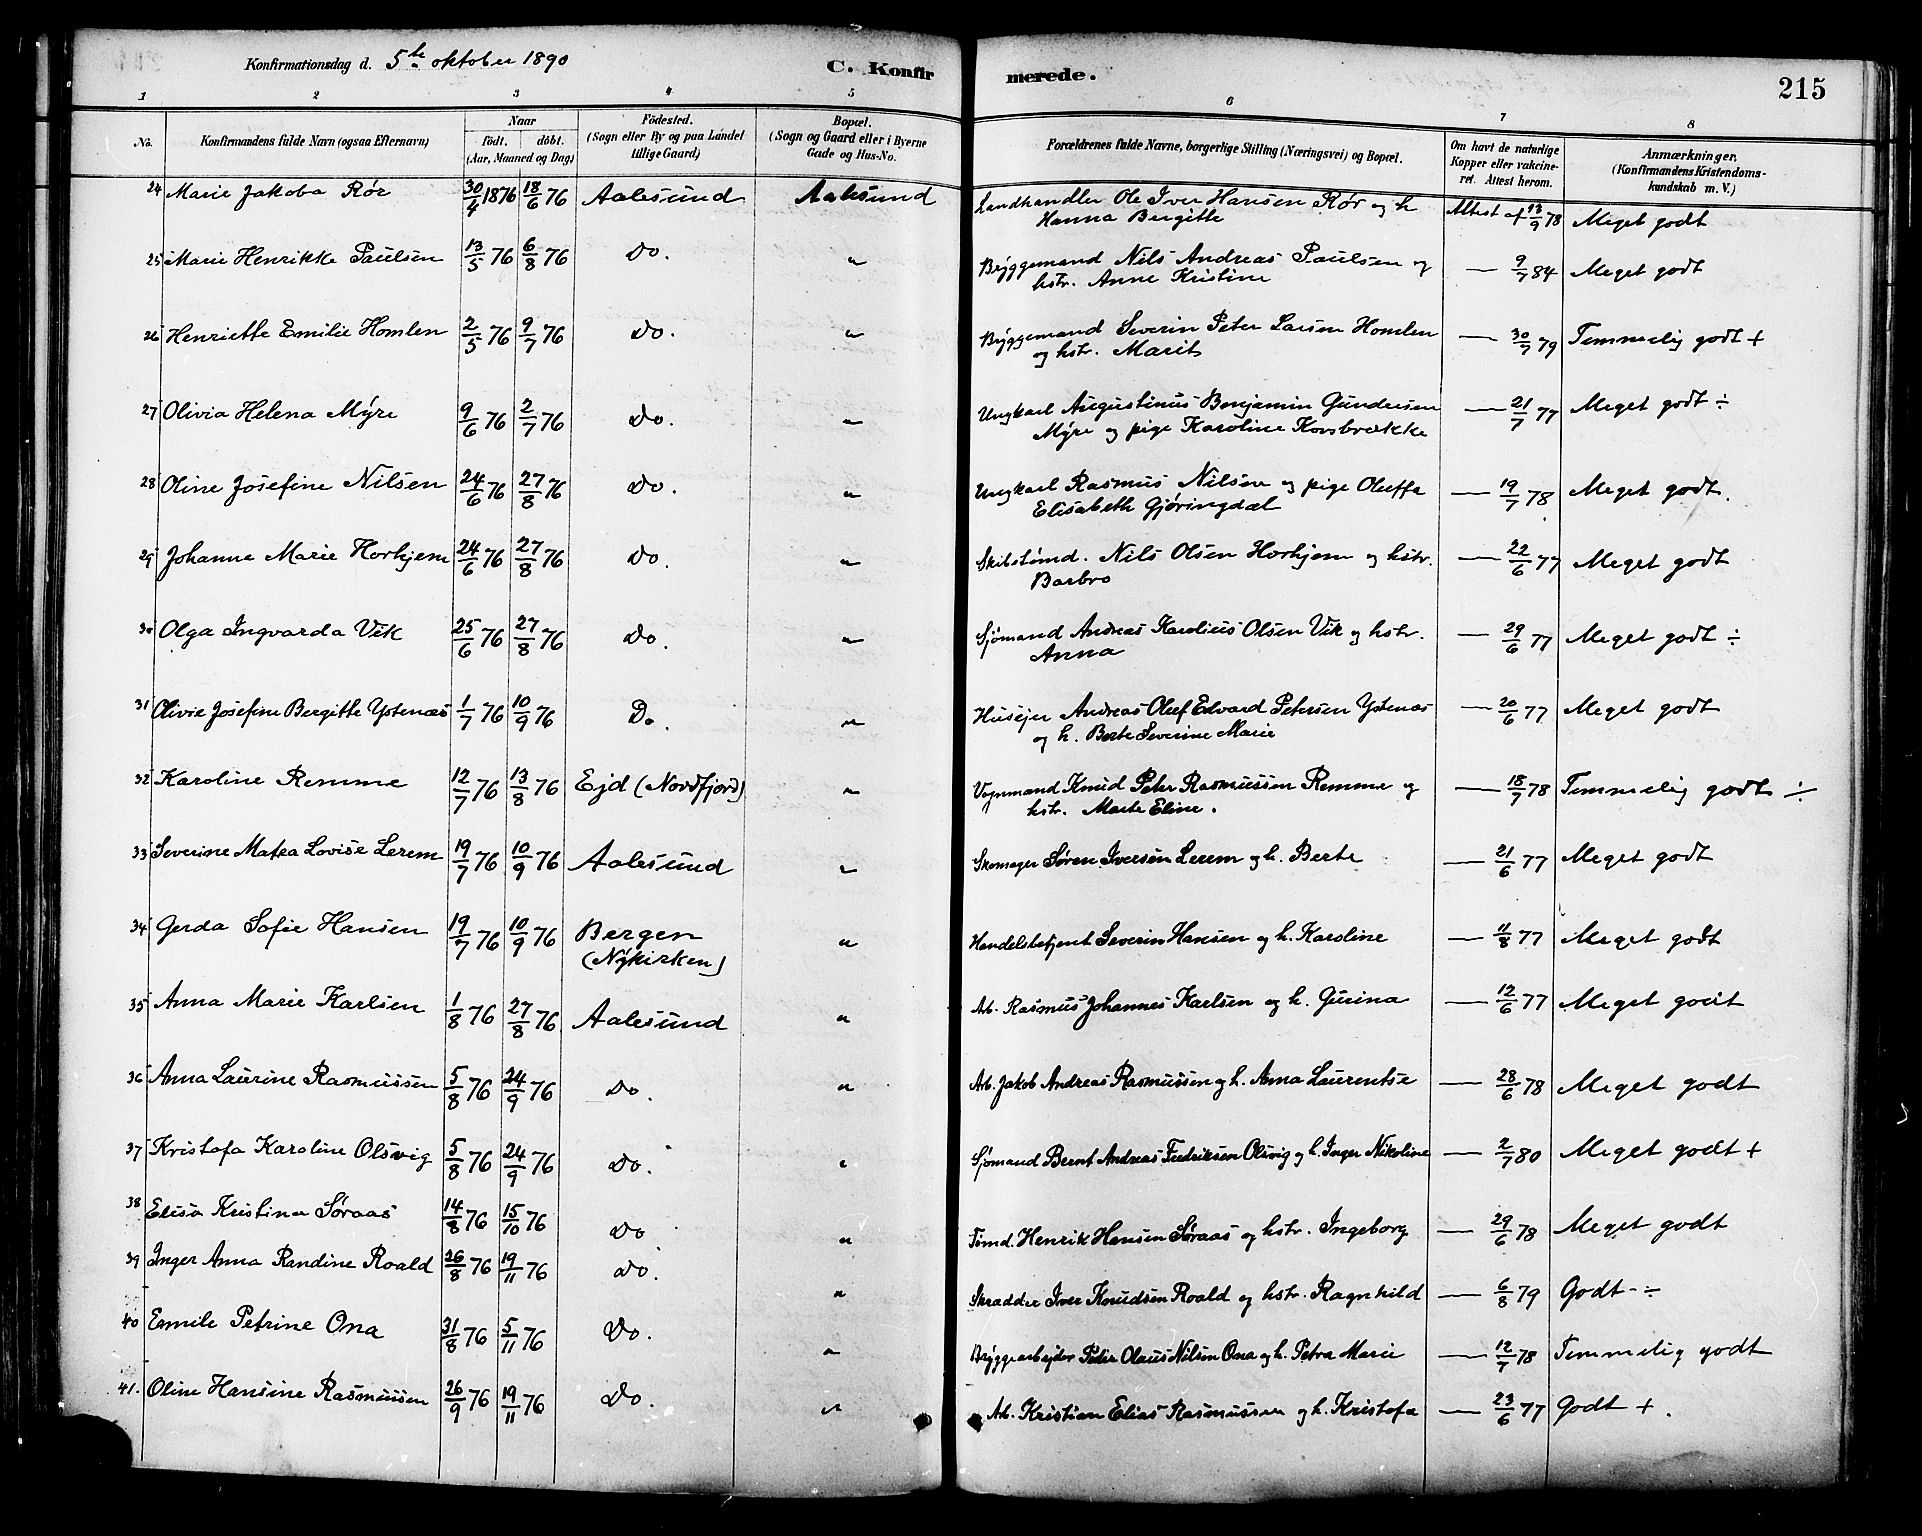 Konfirmationsdag d. 5te oktober 1890
C. Konfirmerede.
215
1 2 3 4 5 6 7 8
No.
Konfirmandens fulde Navn (ogsaa Efternavn)
Naar
födt. döbt.
(Aar, Maaned og Dag)
Födested.
(Sogn eller By og paa Landet
tillige Gaard)
Bopæl.
(Sogn og Gaard eller i Byerne
Gade og Hus-No.
Forældrenes fulde Navne, borgerlige Stilling (Næringsvei) og Bopæl.
Om havt de naturlige
Kopper eller vakcine-
ret. Attest herom.
Anmærkninger.
(Konfirmandens Kristendoms-
kundskab m. V.)
24 Marie Jakoba Rør 30/4 1876 18/6 76 Aalesund Aalesund Landhandler Ole Iver Hansen Rør og h. Attest af 13/9 78 Meget godt
Hanna Bergitte
25 Marie Henrikke Paulsen 13/5 76 6/8 76 Do. " Bryggemand Nils Andreas Paulsen og — 9/7 84 Meget godt
hstr. Anne Kristine
26 Henriette Emilie Homlen 2/5 76 9/7 76 Do. " Bryggemand Severin Peter Larsen Homlen — 30/7 79 Temmelig godt +
og hstr. Marit
27 Olivia Helena Myre 9/6 76 2/7 76 Do. " Ungkarl Augustinus Benjamin Gundersen — 21/7 77 Meget godt ÷
Myre og pige Karoline Kovsbrække
28 Oline Josefine Nilsen 24/6 76 27/8 76 Do. " Ungkarl Rasmus Nilsen og pige Oluffa — 19/7 78 Meget godt.
Elisabeth Gjøringdal
29 Johanne Marie Horhjem 24/6 76 27/8 76 Do. " Skibstømd. Nils Olsen Horhjem og hstr. — 22/6 77 Meget godt
Barbro
30 Olga Ingvarda Vik 25/6 76 27/8 76 Do. " Sjømand Andreas Karolius Olsen Vik og hstr. — 29/6 77 Meget godt ÷
Anna
31 Olivie Josefine Bergitte Ystenæs 1/7 76 10/9 76 Do. " Husejer Andreas Oluf Edvard Petersen Ystenæs — 20/6 77 Meget godt
og h. Berte Severine Marie
32 Karoline Remme 12/7 76 13/8 76 Ejd (Nordfjord) " Vognmand Knud Peter Rasmussen Remme og — 18/7 78 Temmelig godt ÷
hstr. Marte Eline.
33 Severine Matea Lovise Lerem 19/7 76 10/9 76 Aalesund " Skomager Søren Iversen Lerem og h. Berte — 21/6 77 Meget godt
34 Gerda Sofie Hansen 19/7 76 10/9 76 Bergen " Handelsbetjent Severin Hansen og h. Karoline — 11/8 77 Meget godt
(Nykirken)
35 Anna Marie Karlsen 1/8 76 27/8 76 Aalesund " Arb. Rasmus Johannes Karlsen og h. Gurina — 12/6 77 Meget godt
36 Anna Laurine Rasmussen 5/8 76 24/9 76 Do. " Arb. Jakob Andreas Rasmussen og h. Anna Laurentse — 28/6 78 Meget godt
37 Kristofa Karoline Olsvig 5/8 76 24/9 76 Do. " Sjømand Bernt Andreas Fredriksen Olsvig og h. Inger Nikoline — 2/7 80 Meget godt +
38 Elisa Kristina Søraas 14/8 76 15/10 76 Do " Tømd. Henrik Hansen Søraas og hstr. Ingeborg — 29/6 78 Meget godt
39 Inger Anna Randine Roald 26/8 76 19/11 76 Do. " Skrædder Iver Knudsen Roald og hstr. Ragnhild — 6/8 79 Godt ÷
40 Emile Petrine Ona 31/8 76 5/11 76 Do. " Bryggearbejder Peder Olaus Nilsen Ona og h. Petra Marie — 12/7 78 Temmelig godt
41. Oline Hansine Rasmussen 26/9 76 19/11 76 Do. " Arb. Kristian Elias Rasmussen og h. Kristofa — 23/6 77 Godt +.